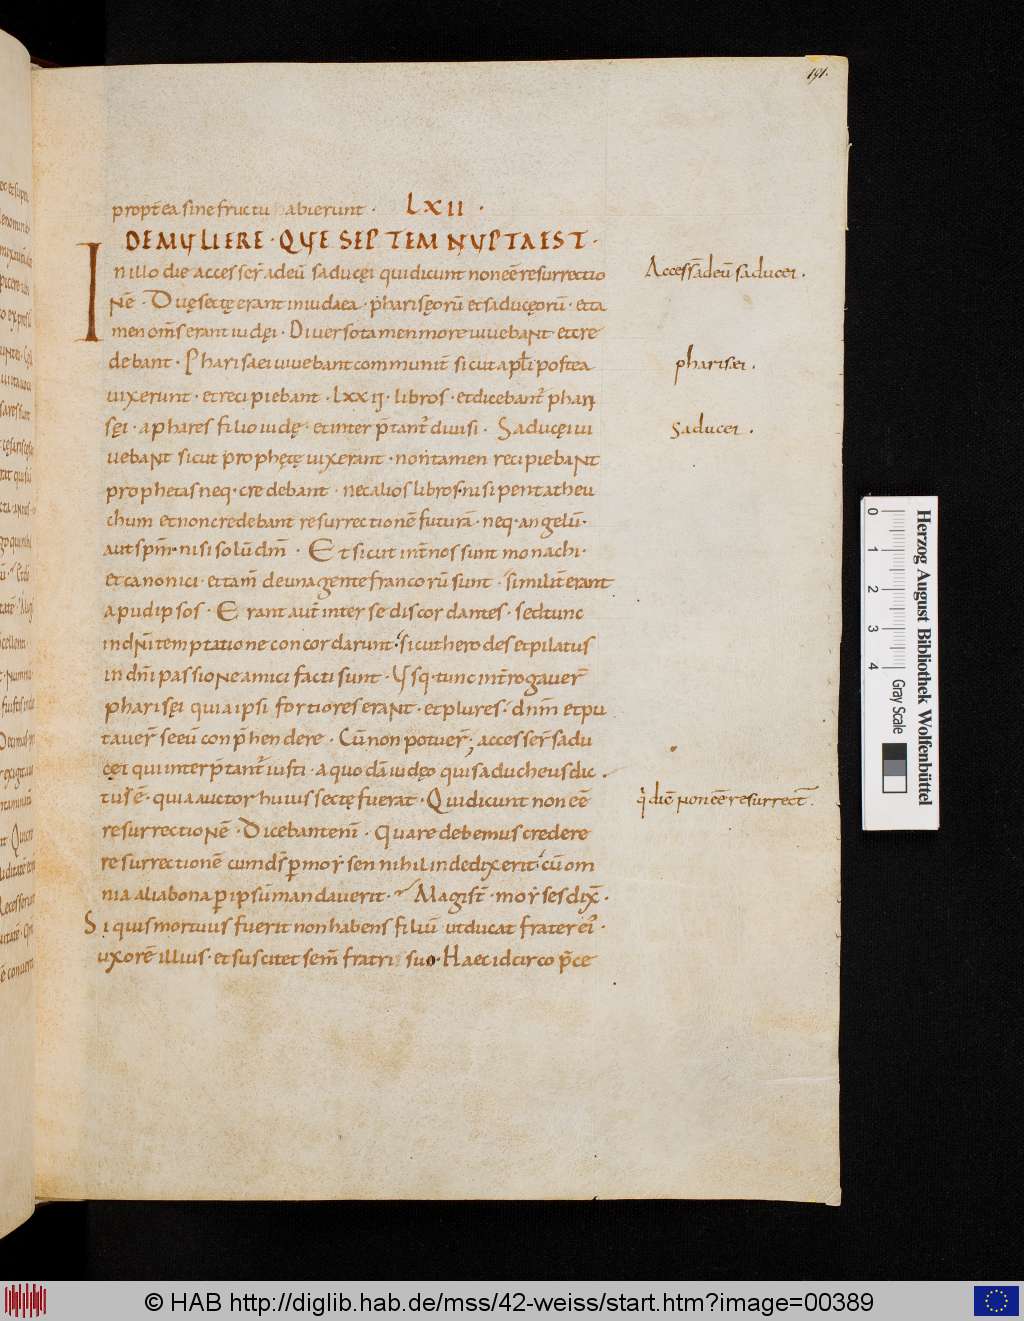 191.
proptea sine fructu abierunt · LXII ·
DE MULIERE · QUE SEPTEM NUPTA EST ·
In illo die accesser̄ ad eū saducęi qui dicunt non eē resurrectio
nē · Duę sectę erant in iudaea · pharisęorū et saducęorū · et ta
men om̄s erant iudęi · Diverso tamen more vivebant et cre
debant · Pharisaei vivebant communit̄ sicut apl̄i postea
vixerunt · et recipiebant · lxxij · libros · et dicebant̄ phari
sęi · a phares filio iudę · et interp̄tant̄ divisi · Saducęi vi
vebant sicut prophętę vixerant · non tamen recipiebant
prophetas neq · credebant · nec alios libros · nisi pentatheu
chum et non credebant resurrectionē futurā · neq · angelū ·
aut spm̄ · nisi solū dm̄ · Et sicut int̄ nos sunt monachi ·
et canonici · et tam̄ de una gente francorū sunt · similit̄ erant
apud ipsos · Erant aut̄ inter se discordantes · sed tunc
in dn̄i temptatione concordarunt · sicut herodes et pilatus
in dn̄i passione amici facti sunt · Usq · tunc int̄rogaver̄
pharisęi quia ipsi fortiores erant · et plures · dn̄m et pu
taver̄ se eū conp̄hendere · Cū non potuer̄, accesser̄ sadu
cęi qui interp̄tant̄ iusti · a quodā iudęo qui saducheus dic
tus ē · quia auctor huius sectę fuerat · Qui dicunt non eē
resurrectionē · Dicebant enī · Quare debemus credere
resurrectionē cum ds̄ p moysen nihil inde dixerit · cū om
nia alia bona p ipsū mandaverit · Magist̄ · moyses dix̄ ·
Si quis mortuus fuerit non habens filiū ut ducat frater ei᾿ ·
uxorē illius · et suscitet sem̄ fratri suo · Haec idcirco p̄ce
Access̄ ad eū saducei ·
pharisæi ·
Saducei ·
q̇ dic̄ non eē resurrect̄ ·
0 1 2 3 4
Herzog August Bibliothek Wolfenbüttel
Gray Scale
© HAB http://diglib.hab.de/mss/42-weiss/start.htm?image=00389